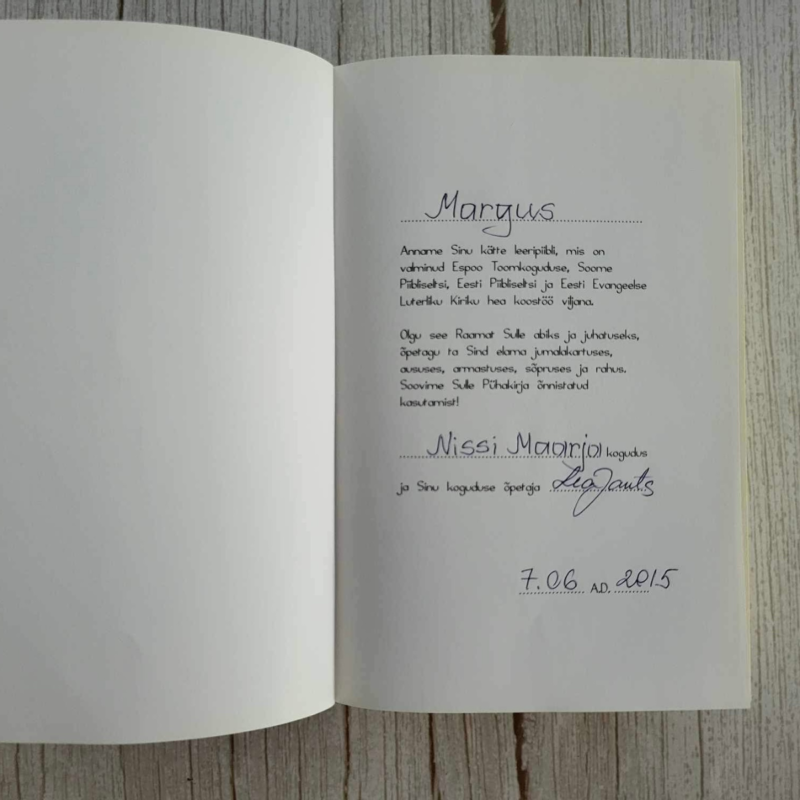 Margus
Anname Sinu kätte leeripiibli, mis on
valminud Espoo Toomkoguduse, Soome
Piibliseltsi, Eesti Piibliseltsi ja Eesti Evangeelse
Luterliku Kiriku hea koostöö viljana.
Olgu see Raamat Sulle abiks ja juhatuseks,
õpetagu ta Sind elama jumalakartuses,
aususes, armastuses, sõpruses ja rahus.
Soovime Sulle Pühakirja õnnistatud
kasutamist!
Nissi Maarja kogudus
ja Sinu koguduse õpetaja Lea Jants
7.06 A.D. 2015